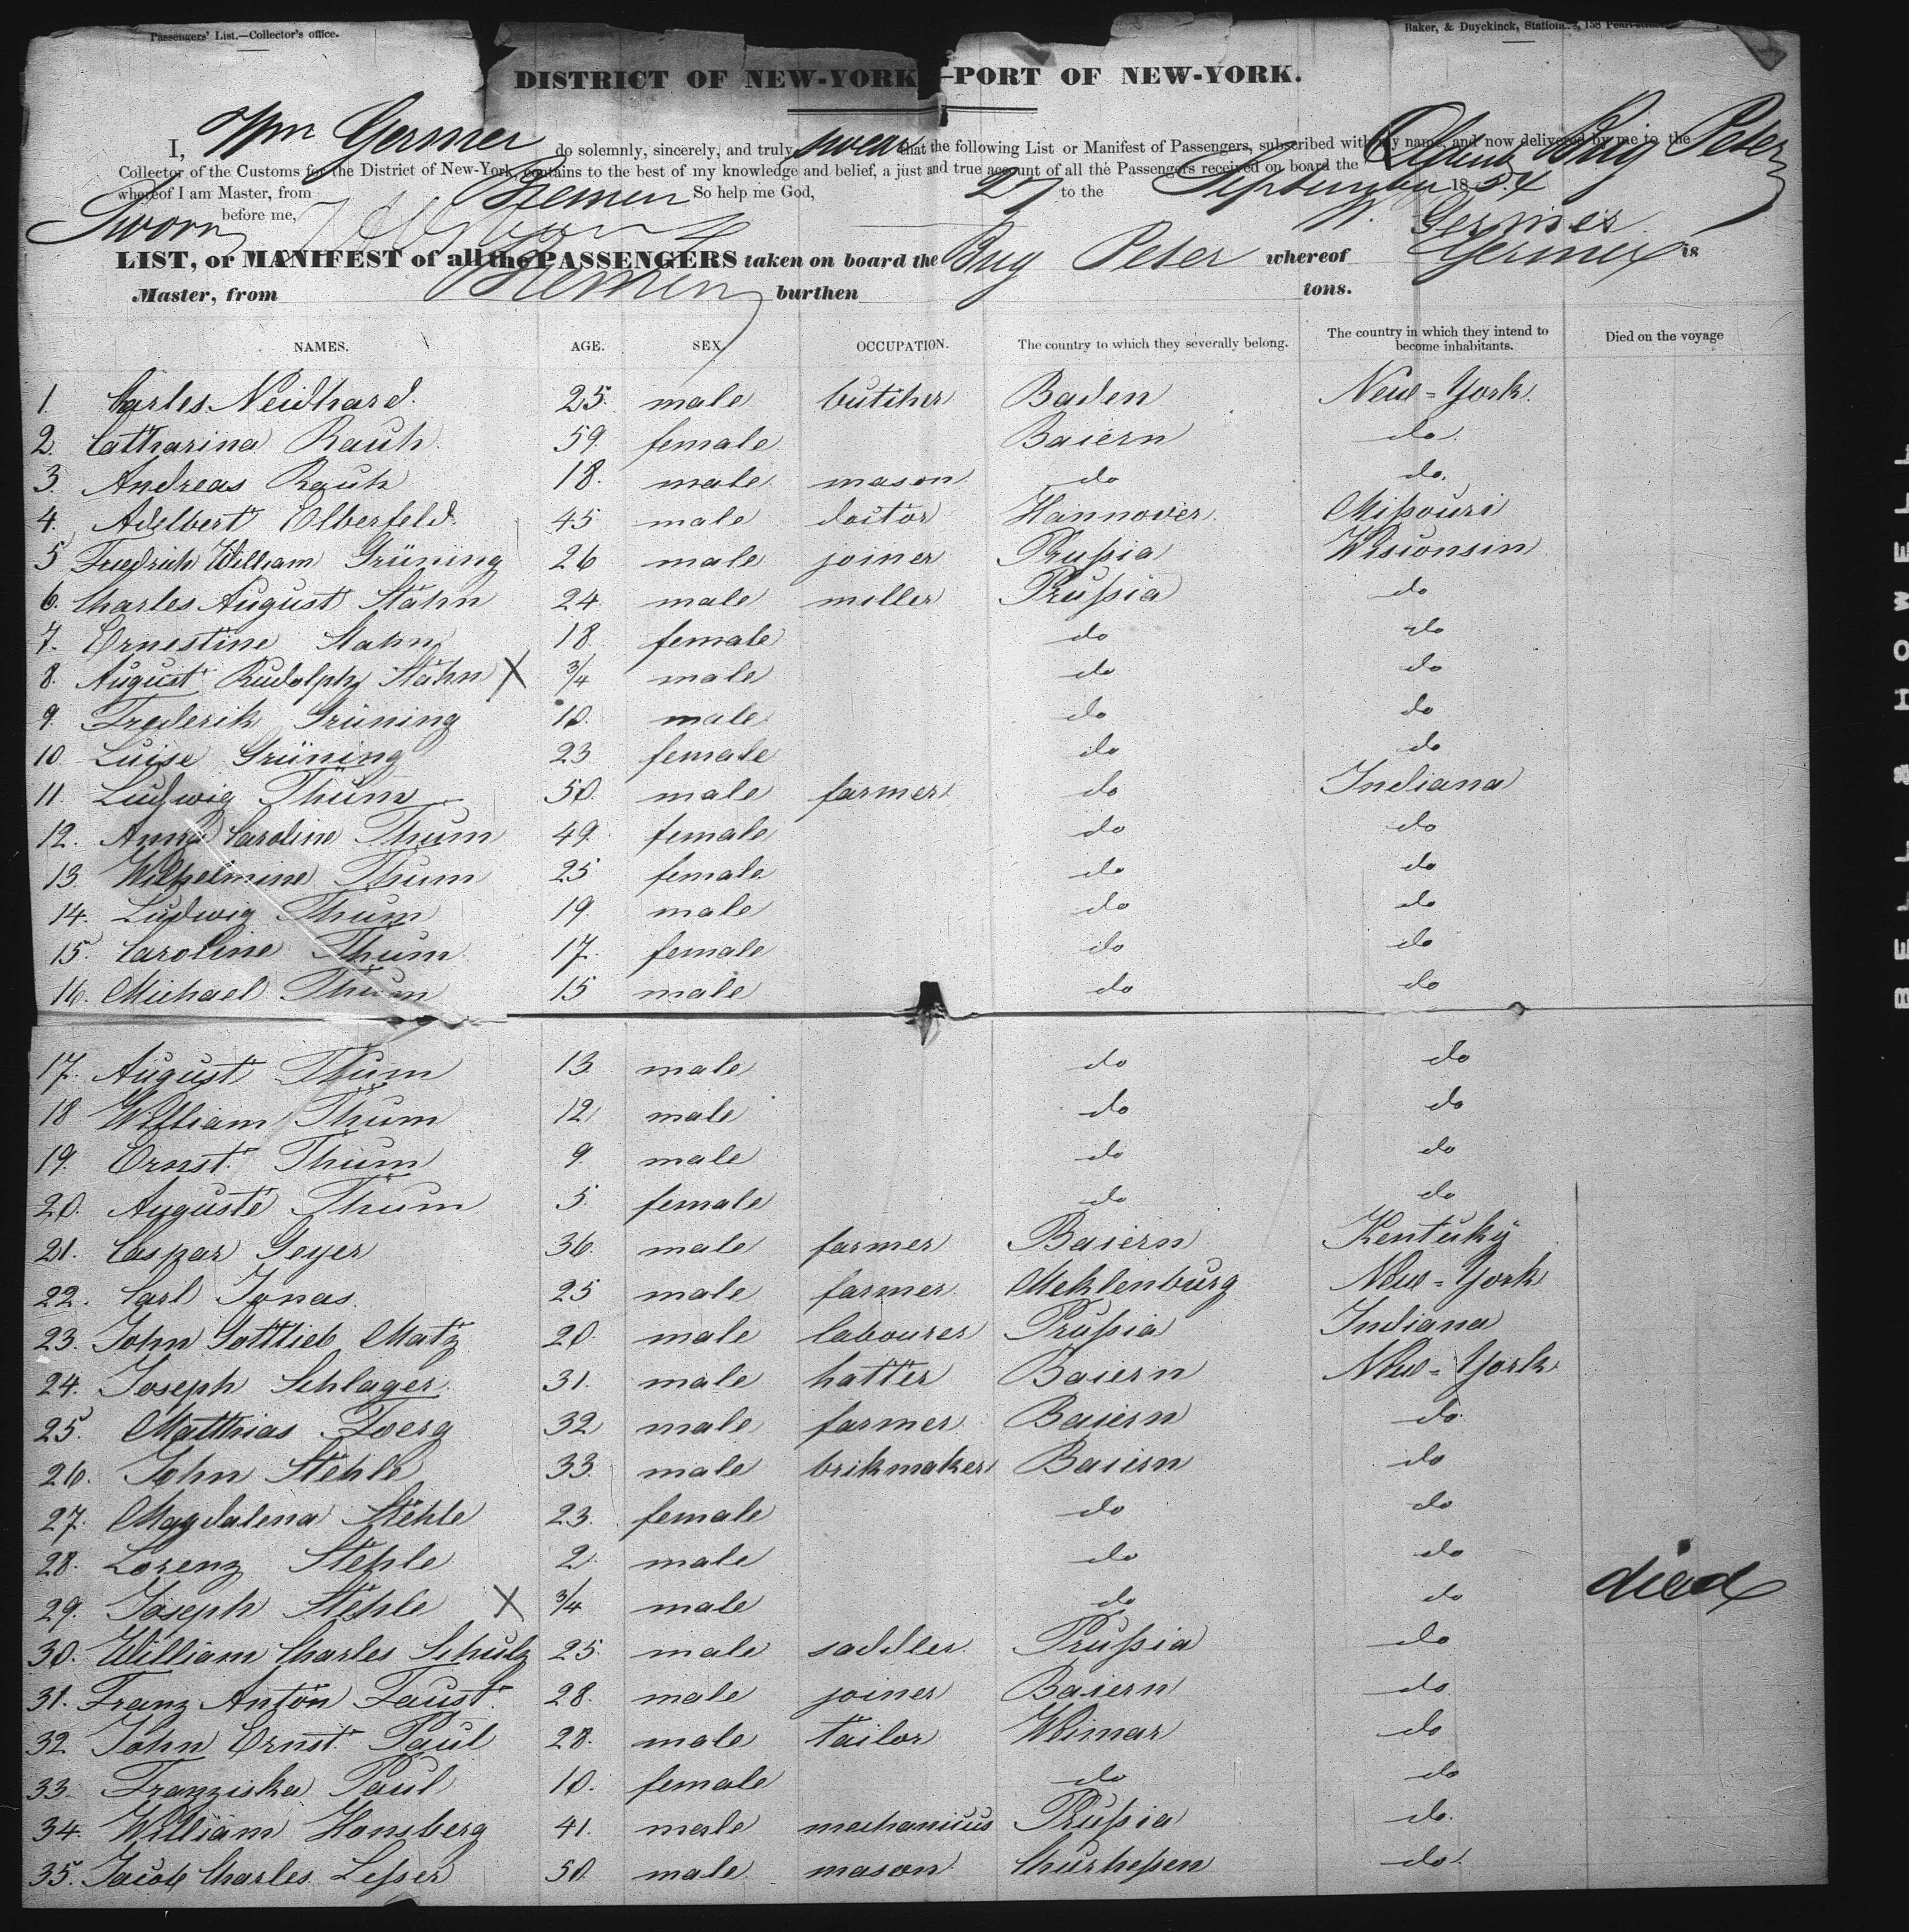 Passengers' List.—Collector's office.
Baker, & Duyckinck, Station..., 158 Pearl-street
DISTRICT OF NEW-YORK—PORT OF NEW-YORK.
I, Wm Germer do solemnly, sincerely, and truly swear that the following List or Manifest of Passengers, subscribed with my name, and now delivered by me to the
Collector of the Customs for the District of New-York, contains to the best of my knowledge and belief, a just and true account of all the Passengers received on board the Brig Peter
whereof I am Master, from Bremen So help me God,
Sworn before me, 27 to the September 1854
W. Germer
LIST, or MANIFEST of all the PASSENGERS taken on board the Brig Peter whereof Germer is
Master, from Bremen burthen tons.
NAMES. AGE. SEX. OCCUPATION. The country to which they severally belong. The country in which they intend to become inhabitants. Died on the voyage
1. Carles Neidhard. 25. male butcher Baden New-York.
2. Catharina Rauh. 59. female Baiern do.
3. Andreas Rauh 18. male mason do do.
4. Adelbert Elberfeld. 45 male doctor Hannover. Missouri
5 Friedrich William Grüning 26 male joiner Prussia Wisconsin
6. Charles August Stahn 24. male miller Prussia do
7. Ernestine Stahn 18. female do do
8. August Rudolph Stahn X 3/4 male do do
9. Frederik Grüning 10. male do do
10. Luise Grüning 23 female do do
11. Ludwig Thum 50. male farmer do Indiana
12. Anna Caroline Thum 49. female do do
13. Wilhelmine Thum 25 female do do
14. Ludwig Thum 19. male do do
15. Caroline Thum 17. female do do
16. Michael Thum 15 male do do
17. August Thum 13 male do do
18 William Thum 12 male do do
19. Ernst Thum 9. male do do
20. Auguste Thum 5. female do do
21. Caspar Geyer 36. male farmer Baiern Kentuky
22. Carl Jonas. 25 male farmer Meklenburg New-York
23. John Gottlieb Matz 20. male labourer Prussia Indiana
24. Joseph Schlager. 31. male hatter Baiern New-York
25. Matthias Foerg 32 male farmer Baiern do.
26. John Stehle 33. male brikmaker Baiern do
27. Magdalena Stehle 23. female do do
28. Lorenz Stehle 2. male do do
29. Joseph Stehle X 3/4 male do do died
30. William Charles Schulz 25. male saddler Prussia do
31. Franz Anton Faust 28. male joiner Baiern do
32. John Ernst Paul 28. male tailor Weimar do
33. Franziska Paul 10. female do do
34. William Honsberg 41. male mechanicus Prussia do.
35. Jacob Charles Lesser 50. male mason Churhessen do.
BELL & HOWELL